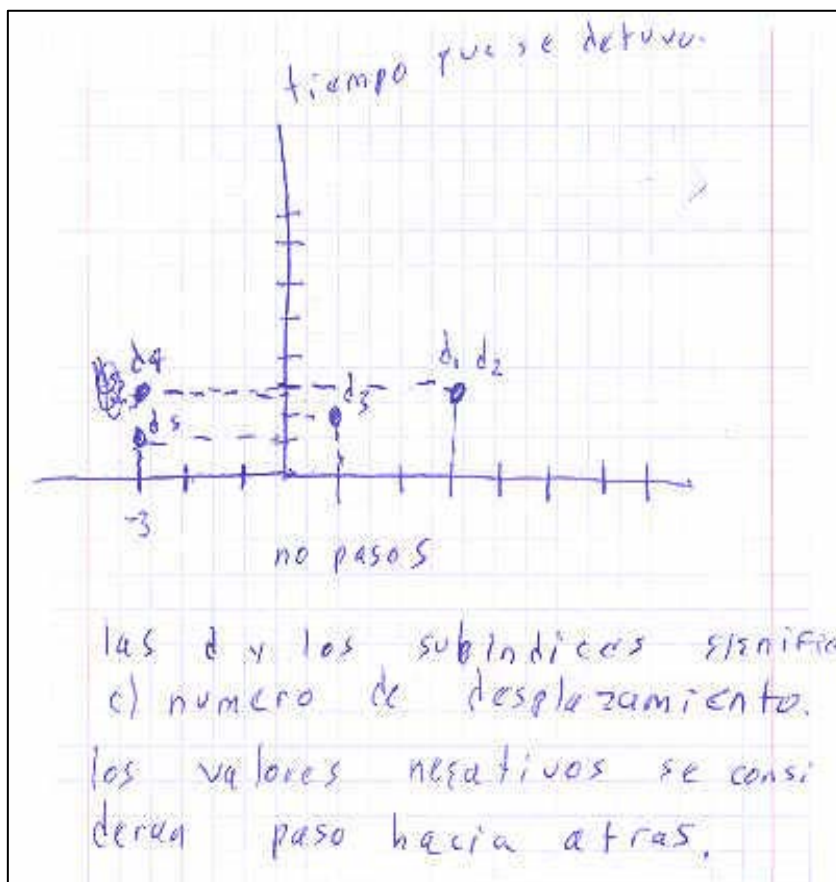 tiempo que se detuvo.
d4
d1 d2
d3
d5
-3
no pasos
las d y los subindices signific
el numero de desplazamiento.
los valores negativos se consi
deran paso hacia atras.